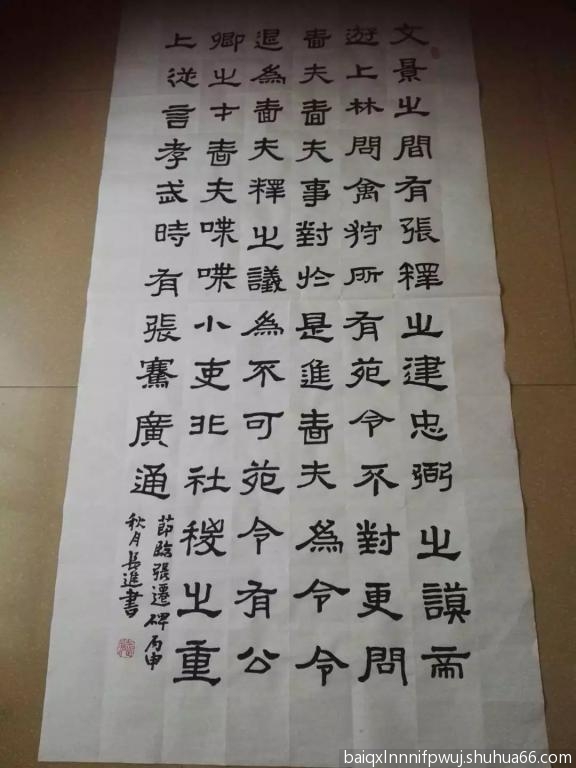 文景之間有張釋之建忠弼之謨帝
遊上林問禽狩所有苑令不對更問
嗇夫嗇夫事對於是進嗇夫為令令
退為嗇夫釋之議為不可苑令有公
卿之才嗇夫喋喋小吏非社稷之重
上從言孝武時有張騫廣通
節臨張遷碑丙申
秋月長進書
baiqxlnnnifpwuj.shuhua66.com